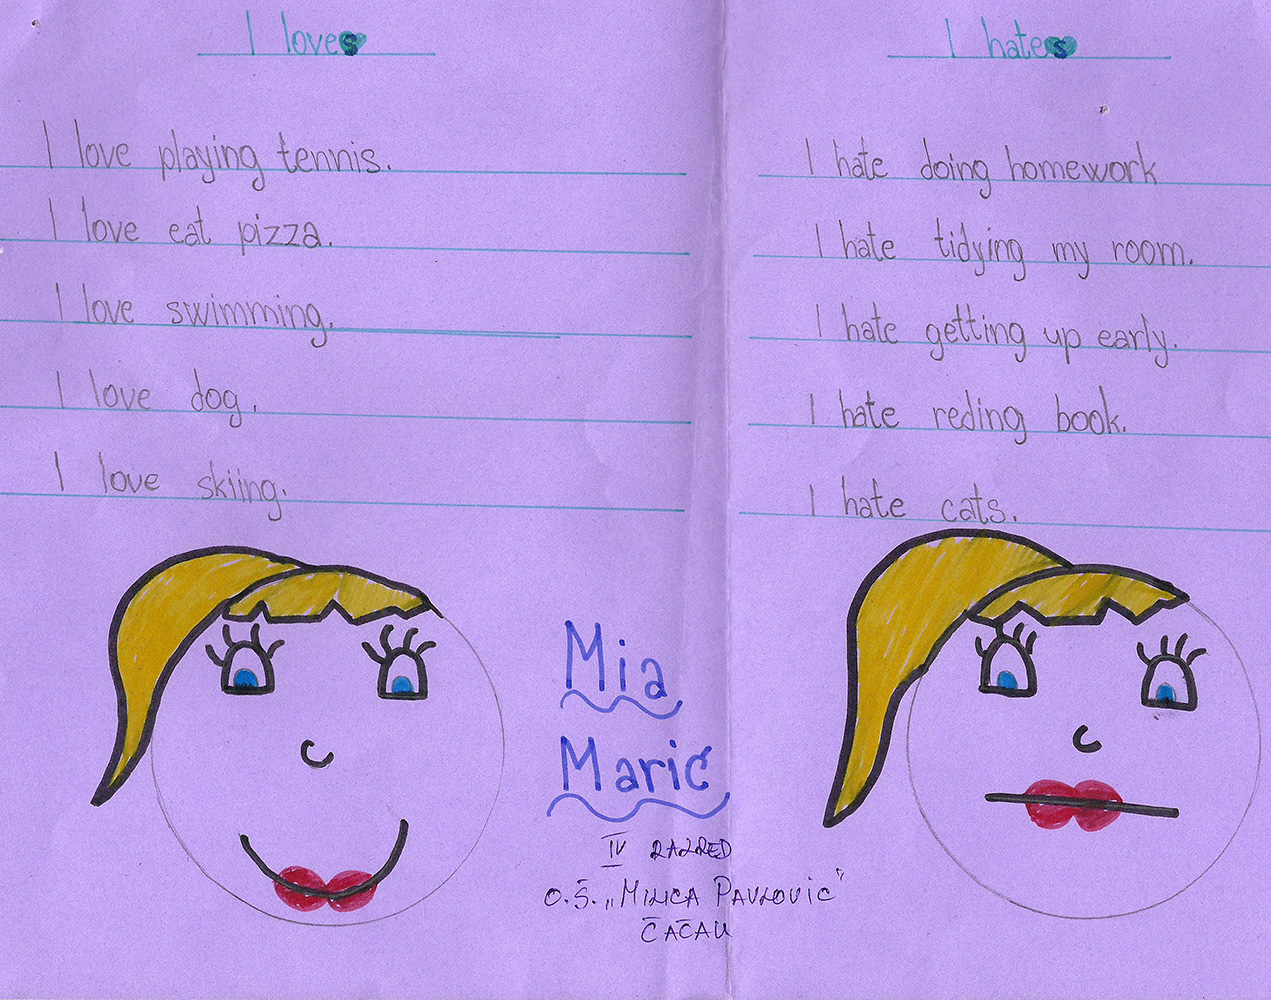 I loves
I love playing tennis.
I love eat pizza.
I love swimming.
I love dog.
I love skiing.
I hates
I hate doing homework
I hate tidying my room.
I hate getting up early.
I hate reding book.
I hate cats.
Mia
Marić
IV RAZRED
O.Š. „MILICA PAVLOVIĆ"
ČAČAK